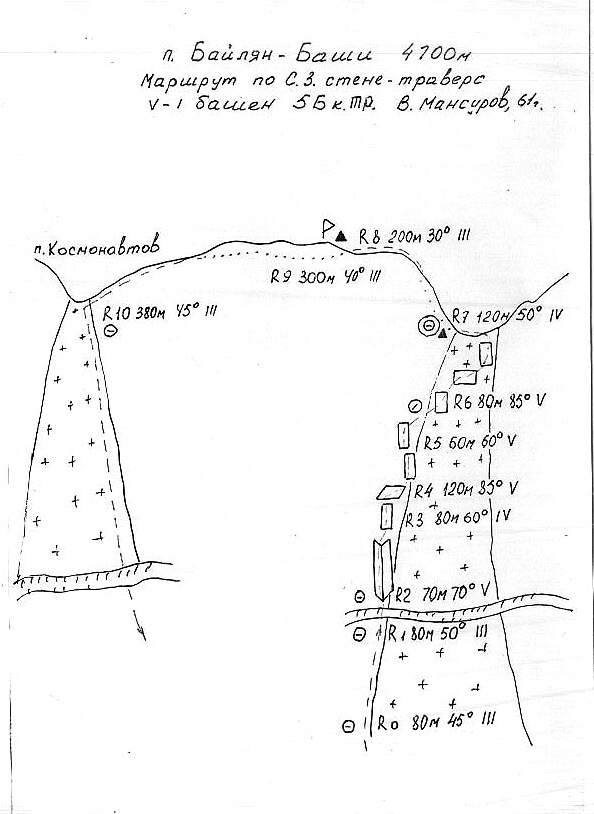 п. Байлян-Баши 4700м
Маршрут по С.З. стене-траверс
V-I башен 5Б к.тр. В. Мансуров, 61г.
п. Космонавтов
R8 200м 30° III
R9 300м 40° III
R10 380м 45° III
R7 120м 50° IV
R6 80м 85° V
R5 60м 60° V
R4 120м 85° V
R3 80м 60° IV
R2 70м 70° V
R1 80м 50° III
R0 80м 45° III